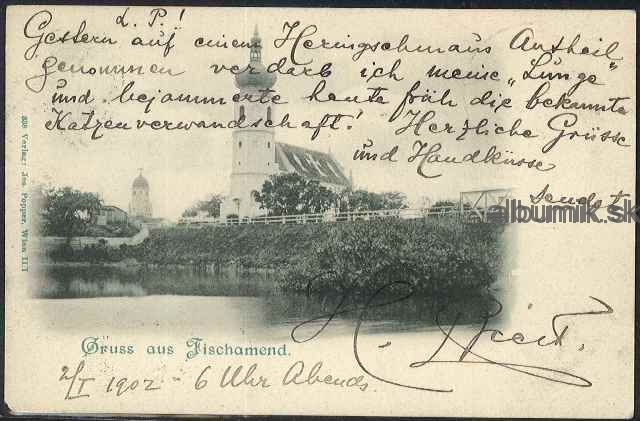 L. P.!
Gestern auf einem Heringschmaus Antheil
genommen verdarb ich meine „Lunge"
und bejammerte heute früh die bekannte
Katzenverwandschaft! Herzliche Grüsse
und Handküsse
sendet
albumik.sk
Verlag: Jos. Popper, Wien III
H.
Gruss aus Fischamend.
1902 - 6 Uhr Abends.